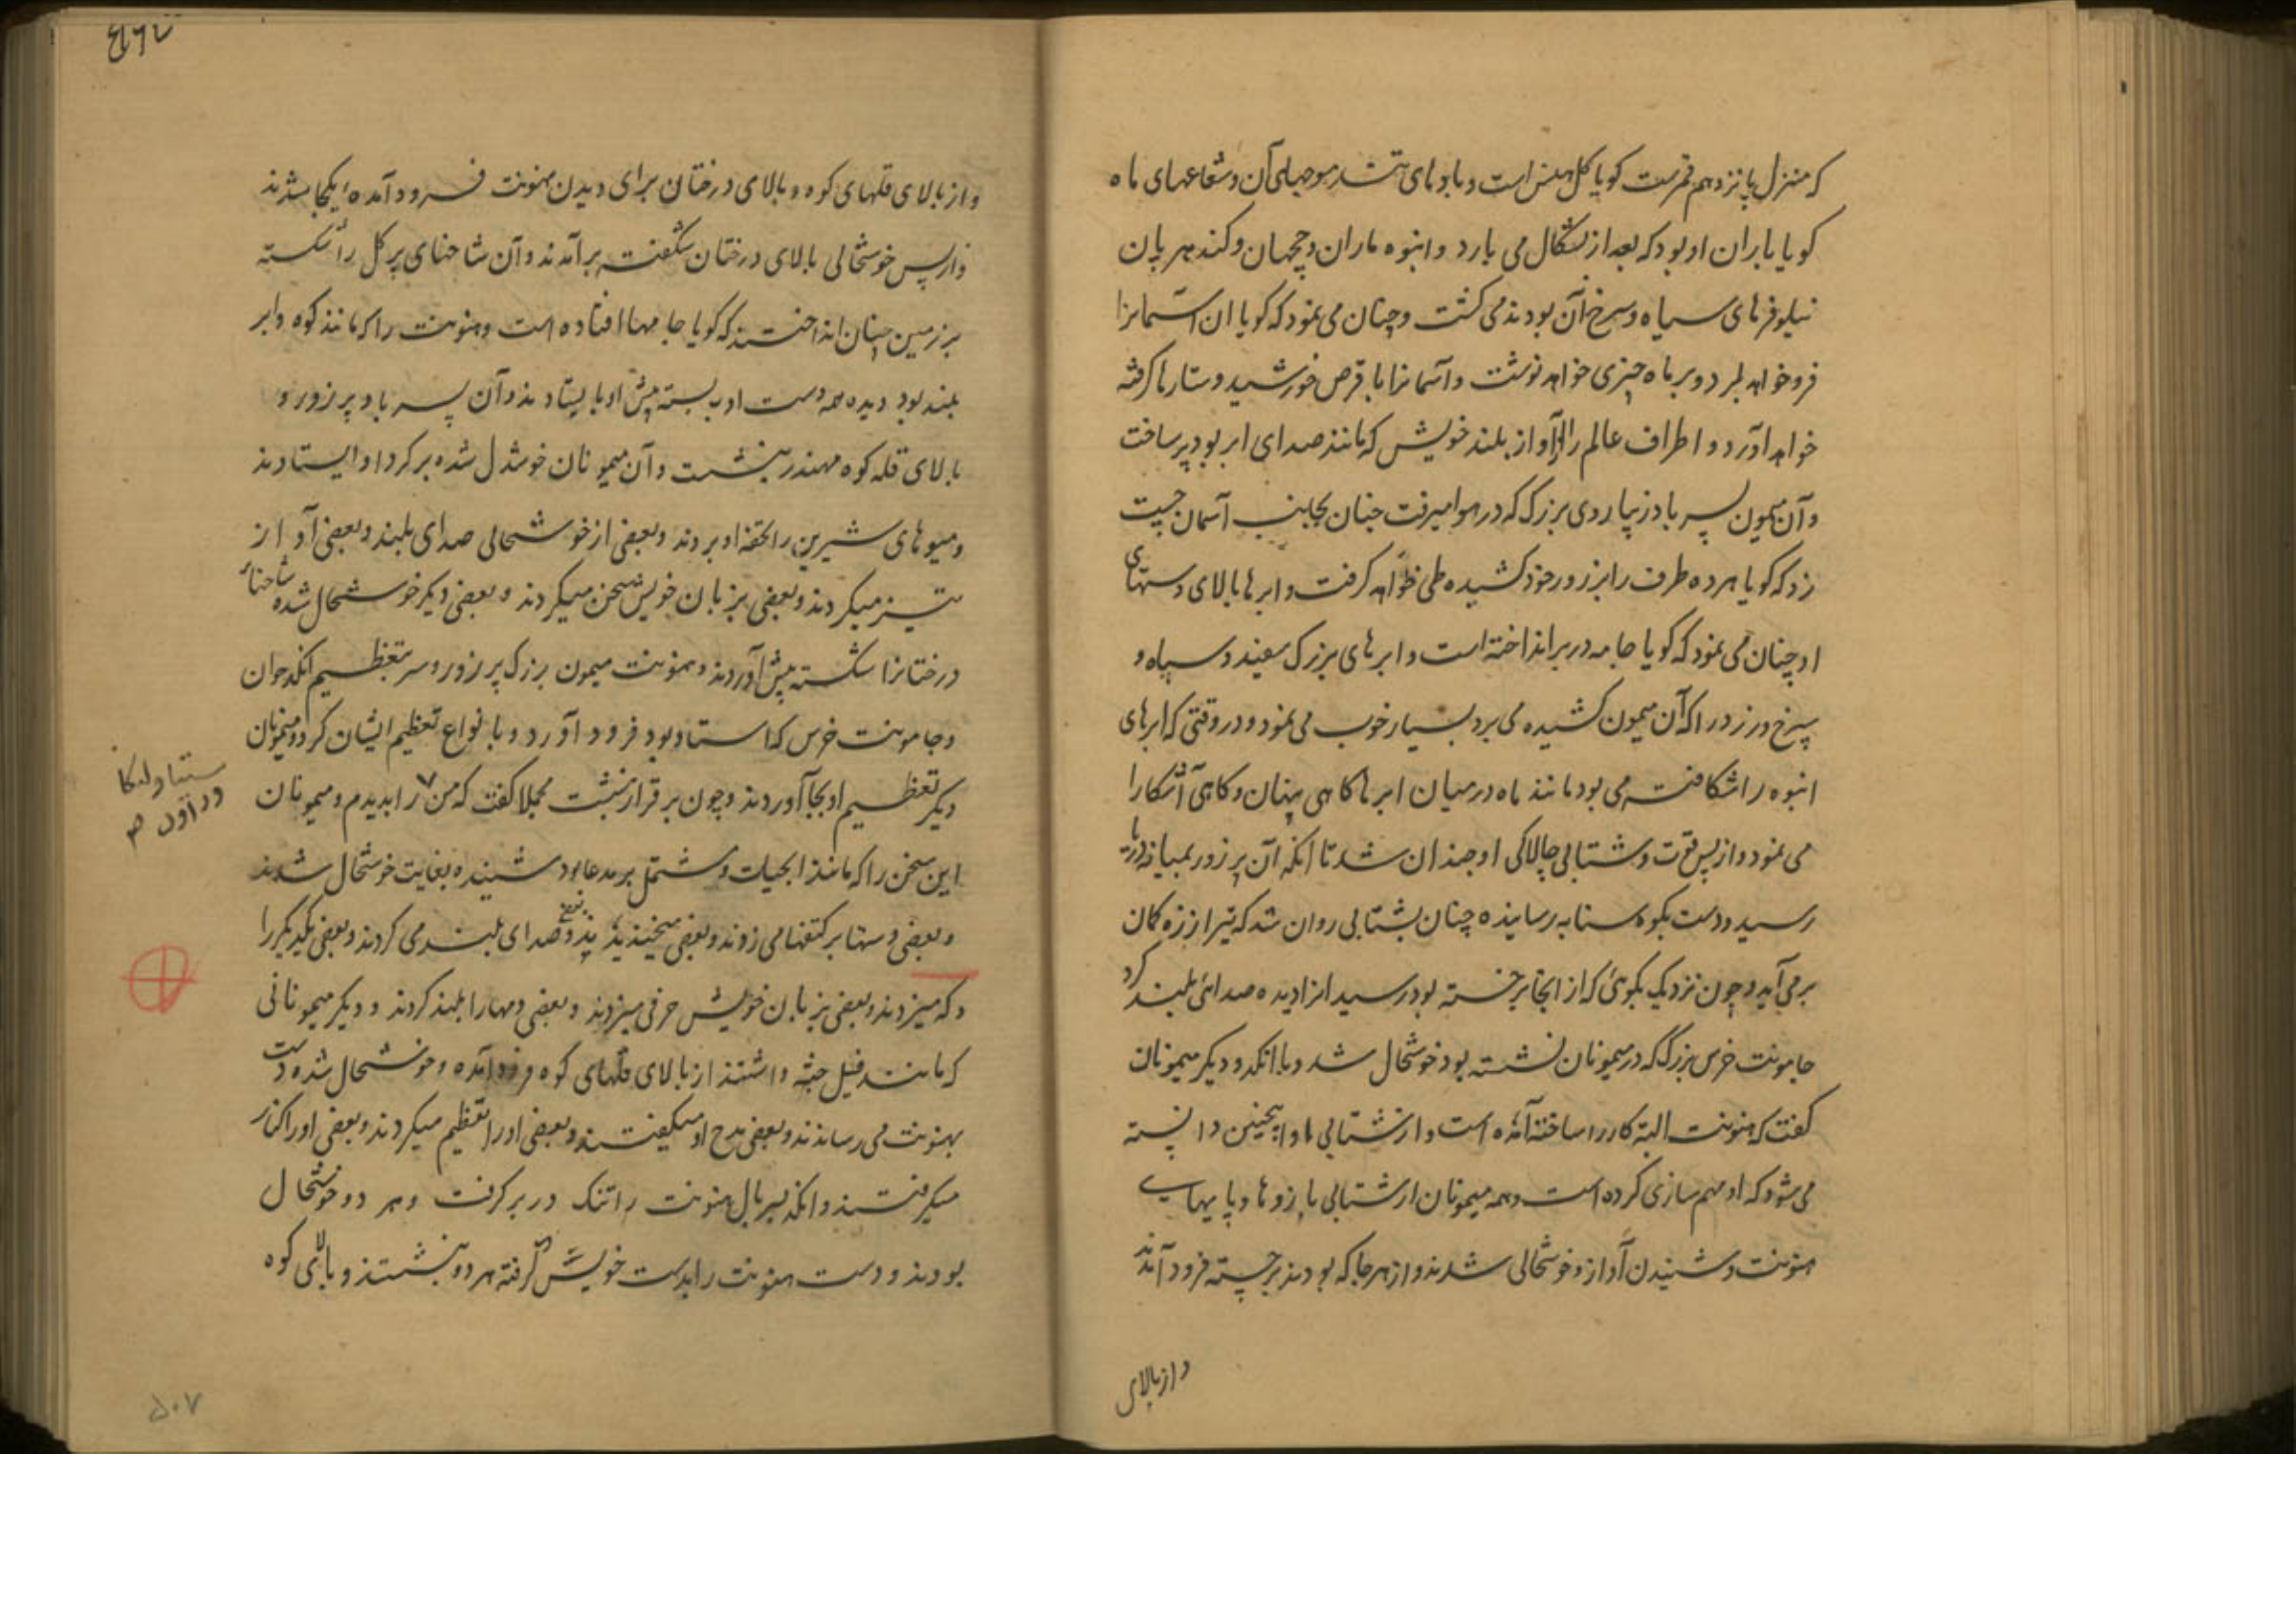 که منزل پانزدهم قمرست کویا کل هنس است و بادهای تند موجهای آن و شعاعهای ماه
کویا باران او بود که بعد از شکال می بارد و انبوه ماران و ججهان و کندهربان
نیلوفرهای سیاه و سرخ آن بودند می کشت و چنان می نمود که کویا ان آسمانرا
فرو خواهد برد و بر ماه چیزی خواهد نوشت و آسمانرا با قرص خورشید و ستارها کرفته
خواهد آورد و اطراف عالم را از آواز بلند خویش که مانند صدای ابر بود پر ساخت
و آن میمون پسر باد زیبا روی بزرک که در هوا میرفت چنان بجانب آسمان جست
زد که کویا هر ده طرف را بزور خود کشیده طی خواهد کرفت و ابرها بالای دستهای
او چنان می نمود که کویا جامه در بر انداخته است و ابرهای بزرک سفید و سیاه و
سرخ و زرد را که آن میمون کشیده می برد بسیار خوب می نمود و در وقتی که ابرهای
انبوه را شکافته می بود مانند ماه در میان ابر ها کاهی پنهان و کاهی آشکارا
می نمود و از پس قوت و شتابی چالاکی او چندان شد تا انکه آن پر زور بمیانه دریا
رسید و دست بکوه سنابه رسانیده چنان بشتابی روان شد که تیر از زه کمان
بر می آید و چون نزدیک بکوهی که از انجا برجسته بود رسید انرا دیده صدائی بلند کرد
جامونت خرس بزرک که در میمونان نشسته بود خوشحال شد و با انکد و دیکر میمونان
کفت که هنونت البته کار را ساخته آمده است و از شتابی او اینچنین دانسته
می شود که او مهم سازی کرده است و همه میمونان از شتابی بازوها و پایهای
هنونت و شنیدن آواز و خوشحالی شدند و از هر جا که بودند برجسته فرود آمدند
و از بالای
و از بالای قلهای کوه و بالای درختان برای دیدن هنونت فرود آمده ایکجا شدند
و از پس خوشحالی بالای درختان شکفته برآمدند و آن شاخهای پر کل را شکسته
بر زمین چنان انداختند که کویا جامها افتاده است و هنونت را که مانند کوه و ابر
بلند بود دیده همه دست ادب بسته پیش او بایستادند و آن پسر باد پر زور و
بالای قله کوه مهندر بنشست و آن میمونان خوشدل شده بر کرد او ایستادند
و میوهای شیرین را تحفه او بردند و بعضی از خوشحالی صدای بلند و بعضی آواز
تیز میکردند و بعضی بزبان خویش سخن میکردند و بعضی دیکر خوشحال شده شاخهای
درختانرا شکسته پیش آوردند و هنونت میمون بزرک پر زور و سر بتعظیم انکد جوان
و جامونت خرس که استاد بود فرود آورد و بانواع تعظیم ایشان کرد و میمونان
دیکر تعظیم او بجا آوردند و چون بر قرار بنشست مجملا کفت که من ۷ را بدیدم و میمونان
ستیا و لنکا و راون
این سخن را که مانند ابحیات و مشتمل بر مدعا بود شنیده بغایت خوشحال شدند
و بعضی دستها بر کتفها می زوند و بعضی میخندیدند و بعضی صدای بلند می کردند و بعضی یکدیکر را
دکه میزدند و بعضی بزبان خویش حرفی میزدند و بعضی دمها را بلند کردند و دیکر میمونانی
که مانند فیل جثه داشتند از بالای قلهای کوه فرود آمده و خوشحال شده دست
بهنونت می رساندند و بعضی مدح او میکفتند و بعضی او را تعظیم میکردند و بعضی او را کنار
میکرفتند و انکد پسر بال هنونت را تنک در بر کرفت و هر دو خوشحال
بودند و دست هنونت را بدست خویش کرفته هر دو بنشستند و بالای کوه
۵۰۷